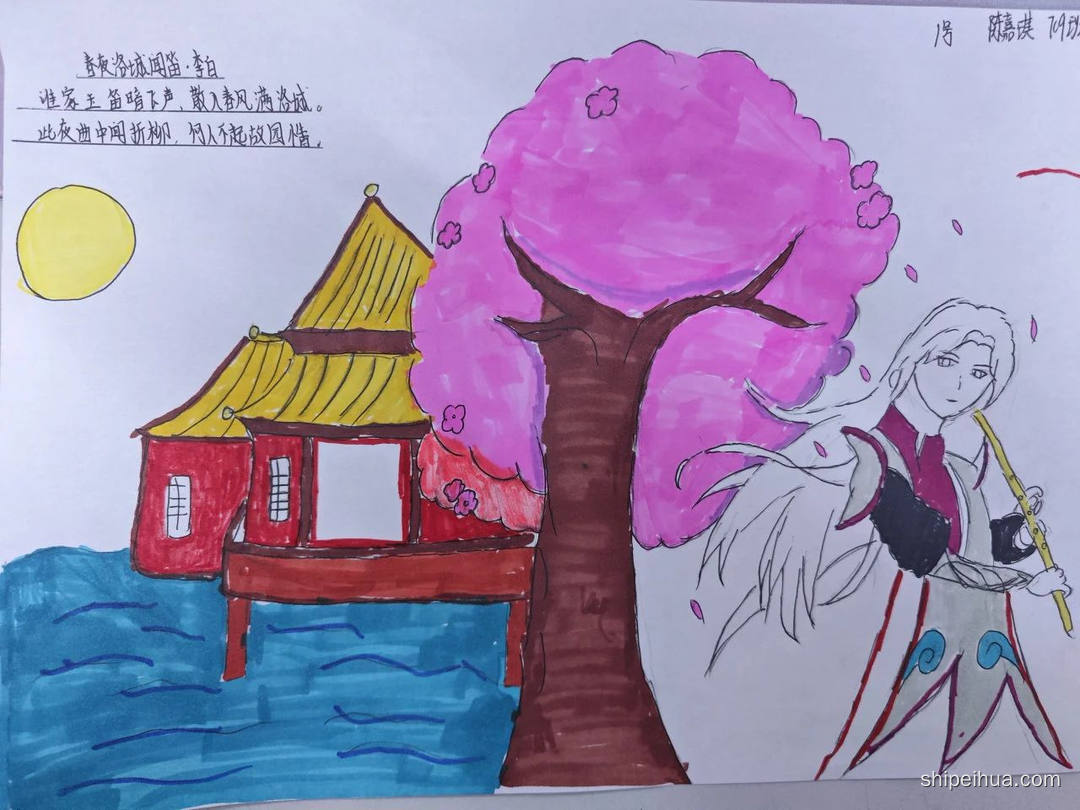 1号 陈嘉淇 709班
春夜洛城闻笛·李白
谁家玉笛暗飞声,散入春风满洛城。
此夜曲中闻折柳,何人不起故园情。
shipeihua.com